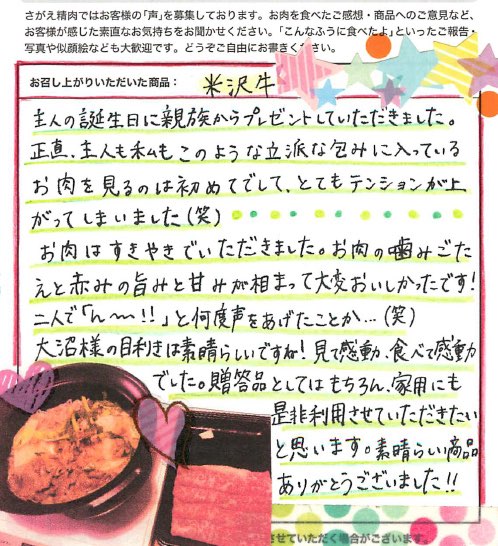 さがえ精肉ではお客様の「声」を募集しております。お肉を食べたご感想・商品へのご意見など、
お客様が感じた素直なお気持ちをお聞かせください。「こんなふうに食べたよ」といったご報告・
写真や似顔絵なども大歓迎です。どうぞご自由にお書きください。
お召し上がりいただいた商品： 米沢牛
主人の誕生日に親族からプレゼントしていただきました。
正直、主人も私もこのような立派な包みに入っている
お肉を見るのは初めてでして、とてもテンションが上
がってしまいました（笑）
お肉はすきやきでいただきました。お肉の噛みごた
えと赤みの旨みと甘みが相まって大変おいしかったです！
二人で「ん〜!!」と何度声をあげたことか…（笑）
大沼様の目利きは素晴らしいですね！見て感動、食べて感動
でした。贈答品としてはもちろん、家用にも
是非利用させていただきたい
と思います。素晴らしい商品
ありがとうございました!!
させていただく場合がございます。